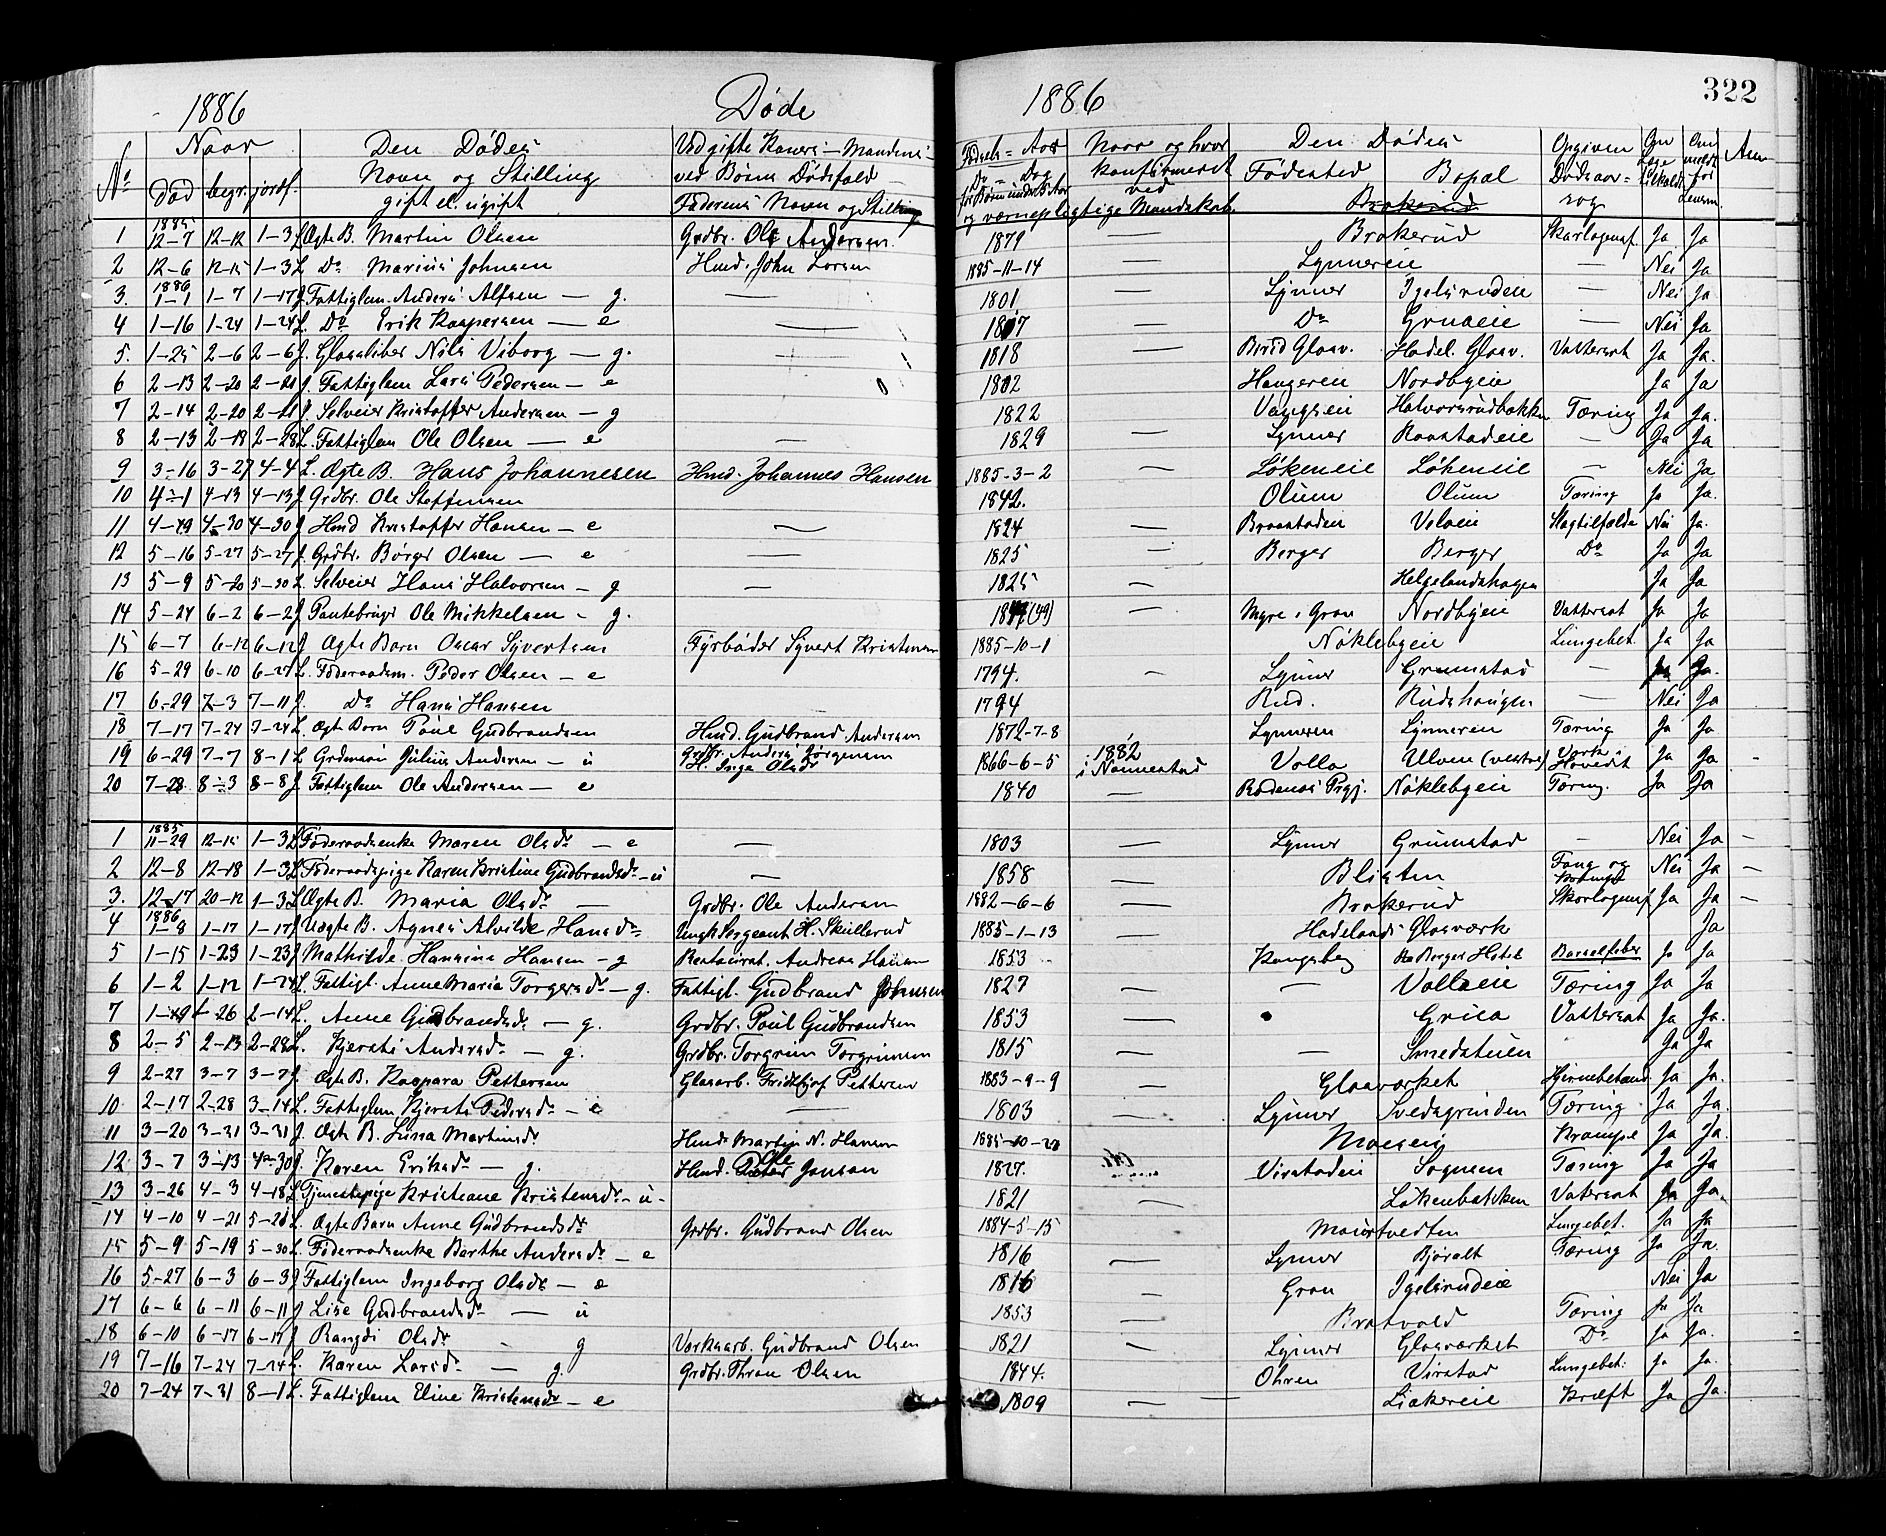 1886 Døde 1886 322
No Naar Den Dødes Ved gifte Koners - Mandens - Fødsels = Aar Naar og hvor Den Dødes Opgiven Om Om Anm
død begr. jordf. Navn og Stilling ved Børns Dødsfald konfirmeret Fødested Bopæl Dødsaar=
gift el. ugift Faderens Navn og Stilling og værnepligtige Mandskab. ved sog
1 1885 12-7 12-12 1-3 J. Ægte B. Martin Olsen Grdbr. Ole Andersen 1879 — Brokerud Skarlagensf. Ja Ja
2 12-6 12-15 1-3 L Do Marius Johnsen Hmd. John Larsen 1885-11-14 Lynnereie — Nei Ja
3. 1886 1-1 1-7 1-17 J. Fattiglem. Anders Alfsen — g. — 1801 — Lynner Igelsrudeie — Nei Ja
4 1-16 1-24 1-24 L. Do Erik Kaspersen — e — 1807 — Do Gruaeie — Nei Ja
5. 1-25 2-6 2-6 J. Glassliber Nils Viborg — g. — 1818 — Glasv. Hadel. Glasv. Vattersot Ja Ja.
6 2-13 2-20 2-21 J. Fattiglem Lars Pedersen — e 1802 Haugereie Nordbyeie Ja Ja
7 2-14 2-20 2-21 J. Selveier Kristoffer Andersen — g 1822 — Vangseie Halvorsrudbakken Tæring Ja Ja.
8 2-13 2-18 2-28 L. Fattiglem Ole Olsen — e — 1829 — Lynner Raastadeie — Ja Ja
9 3-16 3-27 4-4 L. Ægte B. Hans Johannesen Hmd. Johannes Hansen 1885-3-2 — Løkeneie Løkeneie — Nei Ja
10 4-1 4-13 4-13 J Grdbr. Ole Steffensen 1842. Olum Olum Tæring Ja Ja.
11 4-19 4-30 4-30 J Hmd Kristoffer Hansen — e — 1824 — Braastadeie Velseie Slagtilfælde Nei Ja.
12 5-16 5-27 5-27 J. Grdbr. Børger Olsen — e — 1825 — Berger Berger Do Ja Ja
13 5-9 5-20 5-30 L. Selveier Hans Halvorsen — g — 1825 — Helgelandshagen Ja Ja
14 5-24 6-2 6-2 J Pantebruger Ole Mikkelsen - g. (49) — Myre i Gran Nordbyeie Vattersot Ja Ja
15 6-7 6-12 6-12 J Ægte Barn Oscar Syvertsen Fyrbøder Syvert Kristensen 1885-10-1 Nøklebyeie Lungebet. Ja Ja
16 5-29 6-10 6-27 L. Føderaadsm. Peder Olsen — e 1794. — Lynner Grumstad — Ja Ja.
17 6-29 7-3 7-11 J. Do Hans Hansen 1794 Rud. Rudshaugen — Nei Ja
18 7-17 7-24 7-24 L. Ægte Barn Poul Gudbrandsen Hmd. Gudbrand Andersen 1872-7-8 Lynneren Lynneren Tæring Ja Ja
19 6-29 7-7 8-1 L Grdmsøn Julius Andersen — u Grdbr. Anders Jørgensen H. Inge Olsdr 1866-6-5 1882 i Nannestad Volla Ulven (vestre) Værk i Hovedet Ja Ja -
20 7-28 8-3 8-8 J. Fattiglem Ole Andersen — e 1840 — Rødenæs Prgj. Nøklebyeie Tæring. Ja Ja
1 1885 11-29 12-15 1-3 L Føderaadsenke Maren Olsdr — e — 1803 — Lynner Grumstad — Nei Ja —
2 12-8 12-18 1-3 L Føderaadspige Karen Kristine Gudbrandsdr - u — 1858 — Blisten Nei Ja —
3. 12-17 20-12 1-3 L Ægte B. Maria Olsdr — Grdbr. Ole Andersen 1882-6-6 — Brokerud Skarlagensf Ja Ja —
4 1886 1-8 1-17 1-17 J Uægte B. Agnes Alvilde Hansdr Ungk. Sergeant H. Skullerud 1885-1-13 — Hadelands Glasværk Ja
5 1-15 1-23 1-23 J Mathilde Hansine Hansen - g Restaurat. Andreas Hansen 1853 Kongsberg Berger Hotel Barselfeber Ja Ja
6 1-2 1-12 1-24 L. Fattigl. Anne Maria Torgersdr — g. Fattigl. Gudbrand Johnsen 1827 — — Vollaeie Tæring Ja Ja
7 1-19 1-26 2-14 L. Anne Gudbrandsdr — g. Grdbr. Poul Gudbrandsen 1853 — Grua Vattersot Ja Ja.
8 2-5 2-13 2-28 L. Kjersti Andersdr — g. Grdbr. Torgrim Torgrimsen 1815 — — Smedstuen Ja Ja
9 2-27 3-7 3-7 J. Ægte B. Kaspara Pettersen Glasarb. Fridtjof Pettersen 1883-9-9 — Glasværket Hjernebetænd Ja Ja.
10 2-17 2-28 3-14 L. Fattiglem Kjersti Pedersdr — e — 1803 — Lynner Svedsgrinden Tæring Ja Ja.
11 3-20 3-31 3-31 J. Ægte B. Lina Martinsdr Hmd. Martin N. Hansen 1885-10-20 Krampe Ja Ja.
12 3-7 3-13 J. Karen Eriksdr — g. Hmd. Ole Jonson 1827. Virstadeie Sognsen Tæring Ja Ja.
13 3-26 4-3 4-18 L Tjenestepige Kristiane Kristensdr - u - 1821 — Løkenbakken Vatersot Ja Ja.
14 4-10 4-21 5-20 L. Ægte Barn Anne Gudbrandsdr Grdbr. Gudbrand Olsen 1884-5-15 Maurtvedten Lungebet. Ja Ja
15 5-9 5-19 5-30 L. Føderaadsenke Berthe Andersdr — e 1816 — Lynner Bjøralt Tæring Ja Ja.
16 5-27 6-3 6-3 J Fattiglem Ingeborg Olsdr — e 1816 — Gran Igelsrudeie Nei Ja
17 6-6 6-11 6-11 J Lise Gudbrandsdr — u 1853 — Bratvold Tæring Ja Ja
18 6-10 6-17 6-17 J Rangdi Olsdr g Værksarb. Gudbrand Olsen 1821 — Lynner Glasværket Do Ja Ja.
19 7-16 7-24 7-24 L. Karen Larsdr — g. Grdbr. Thron Olsen 1844. Ohren Virstad Lungebet. Ja Ja.
20 7-24 7-31 8-1 L. Fattiglem Eline Kristensdr — e 1809 — Liakereie Kræft Ja Ja.